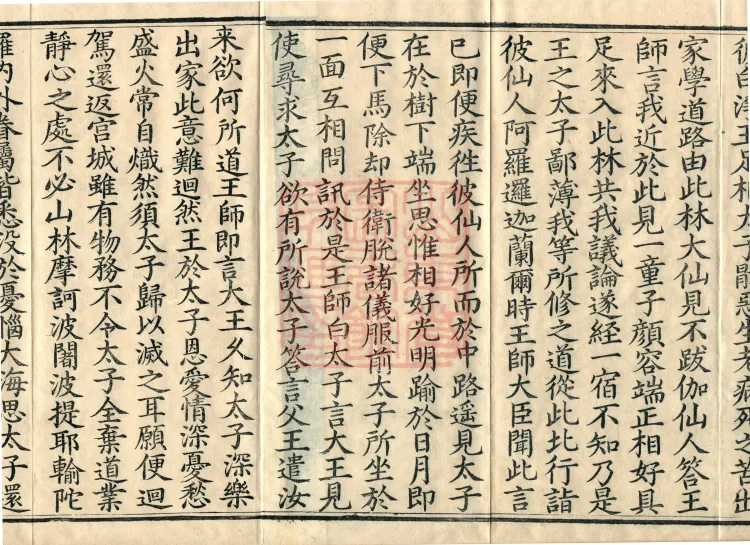 家學道路由此林大仙見不跋伽仙人答王
師言我近於此見一童子顏容端正相好具
足來入此林共我議論遂經一宿不知乃是
王之太子鄙薄我等所修之道從此北行詣
彼仙人阿羅邏迦蘭爾時王師大臣聞此言
已即便疾徃彼仙人所而於中路遥見太子
在於樹下端坐思惟相好光明踰於日月即
便下馬除却侍衛脫諸儀服前太子所坐於
一面互相問訊於是王師白太子言大王見
使尋求太子欲有所說太子答言父王遣汝
来欲何所道王師即言大王久知太子深樂
出家此意難迴然王於太子恩愛情深憂愁
盛火常自熾然須太子歸以滅之耳願便迴
駕還返宫城雖有物務不令太子全棄道業
靜心之處不必山林摩訶波闍波提耶輸陀
羅内外眷屬皆悉没於憂惱大海思太子還